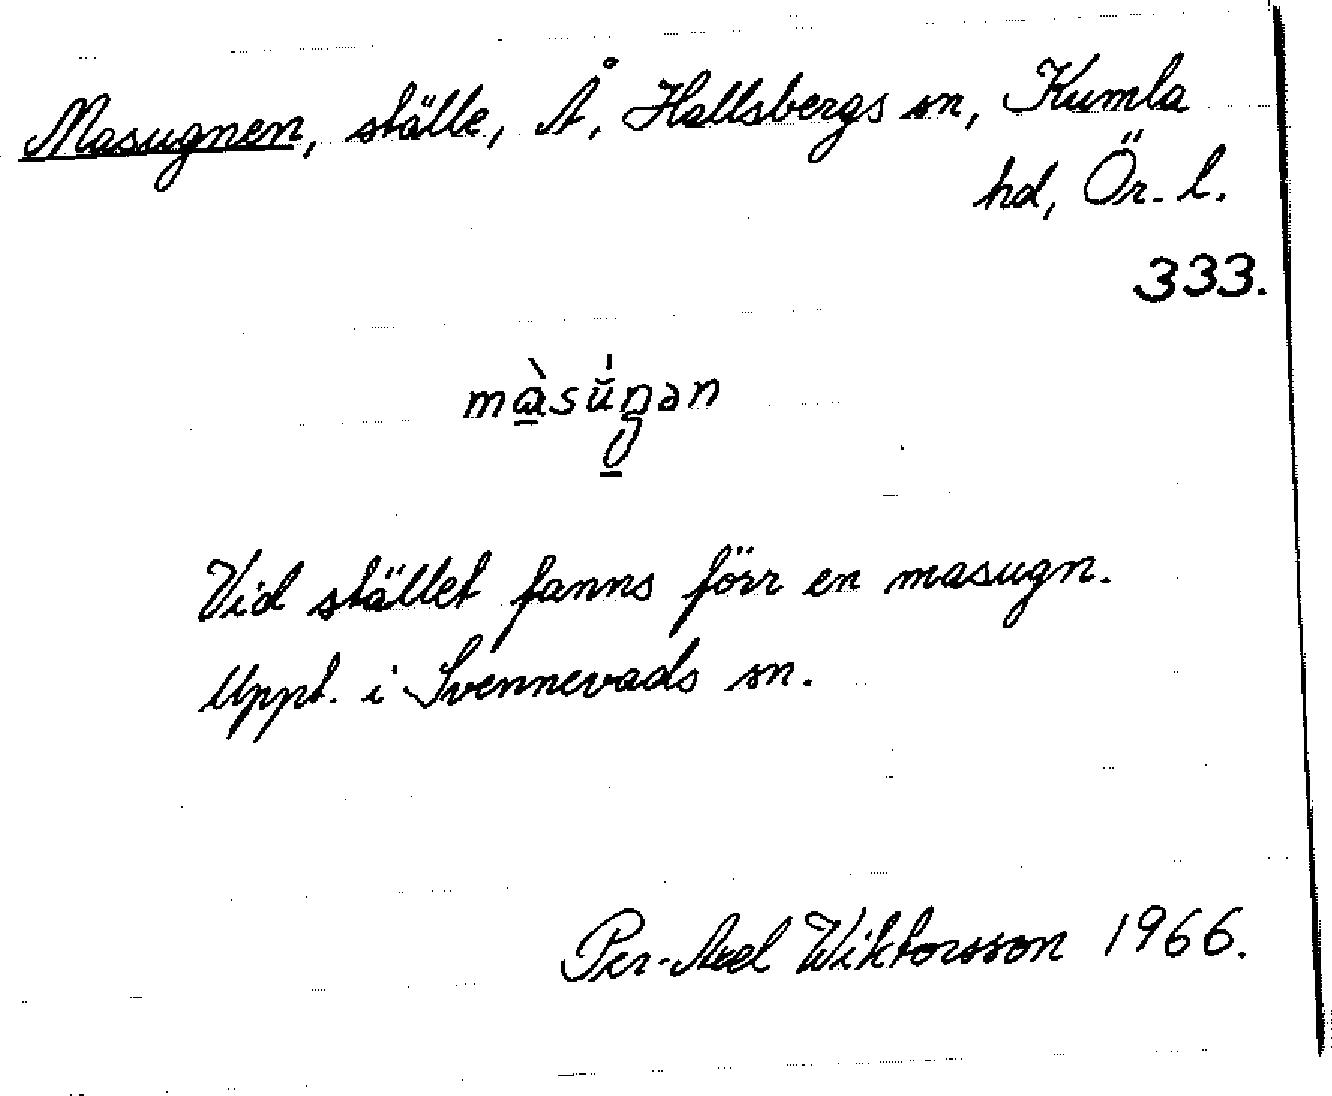 Masugnen, ställe, Å, Hallsbergs sn, Kumla
hd, Ör. l.
333.
màsúŋən
Vid stället fanns förr en masugn.
Uppt. i Svennevads sn.
Per-Axel Wiktorsson 1966.